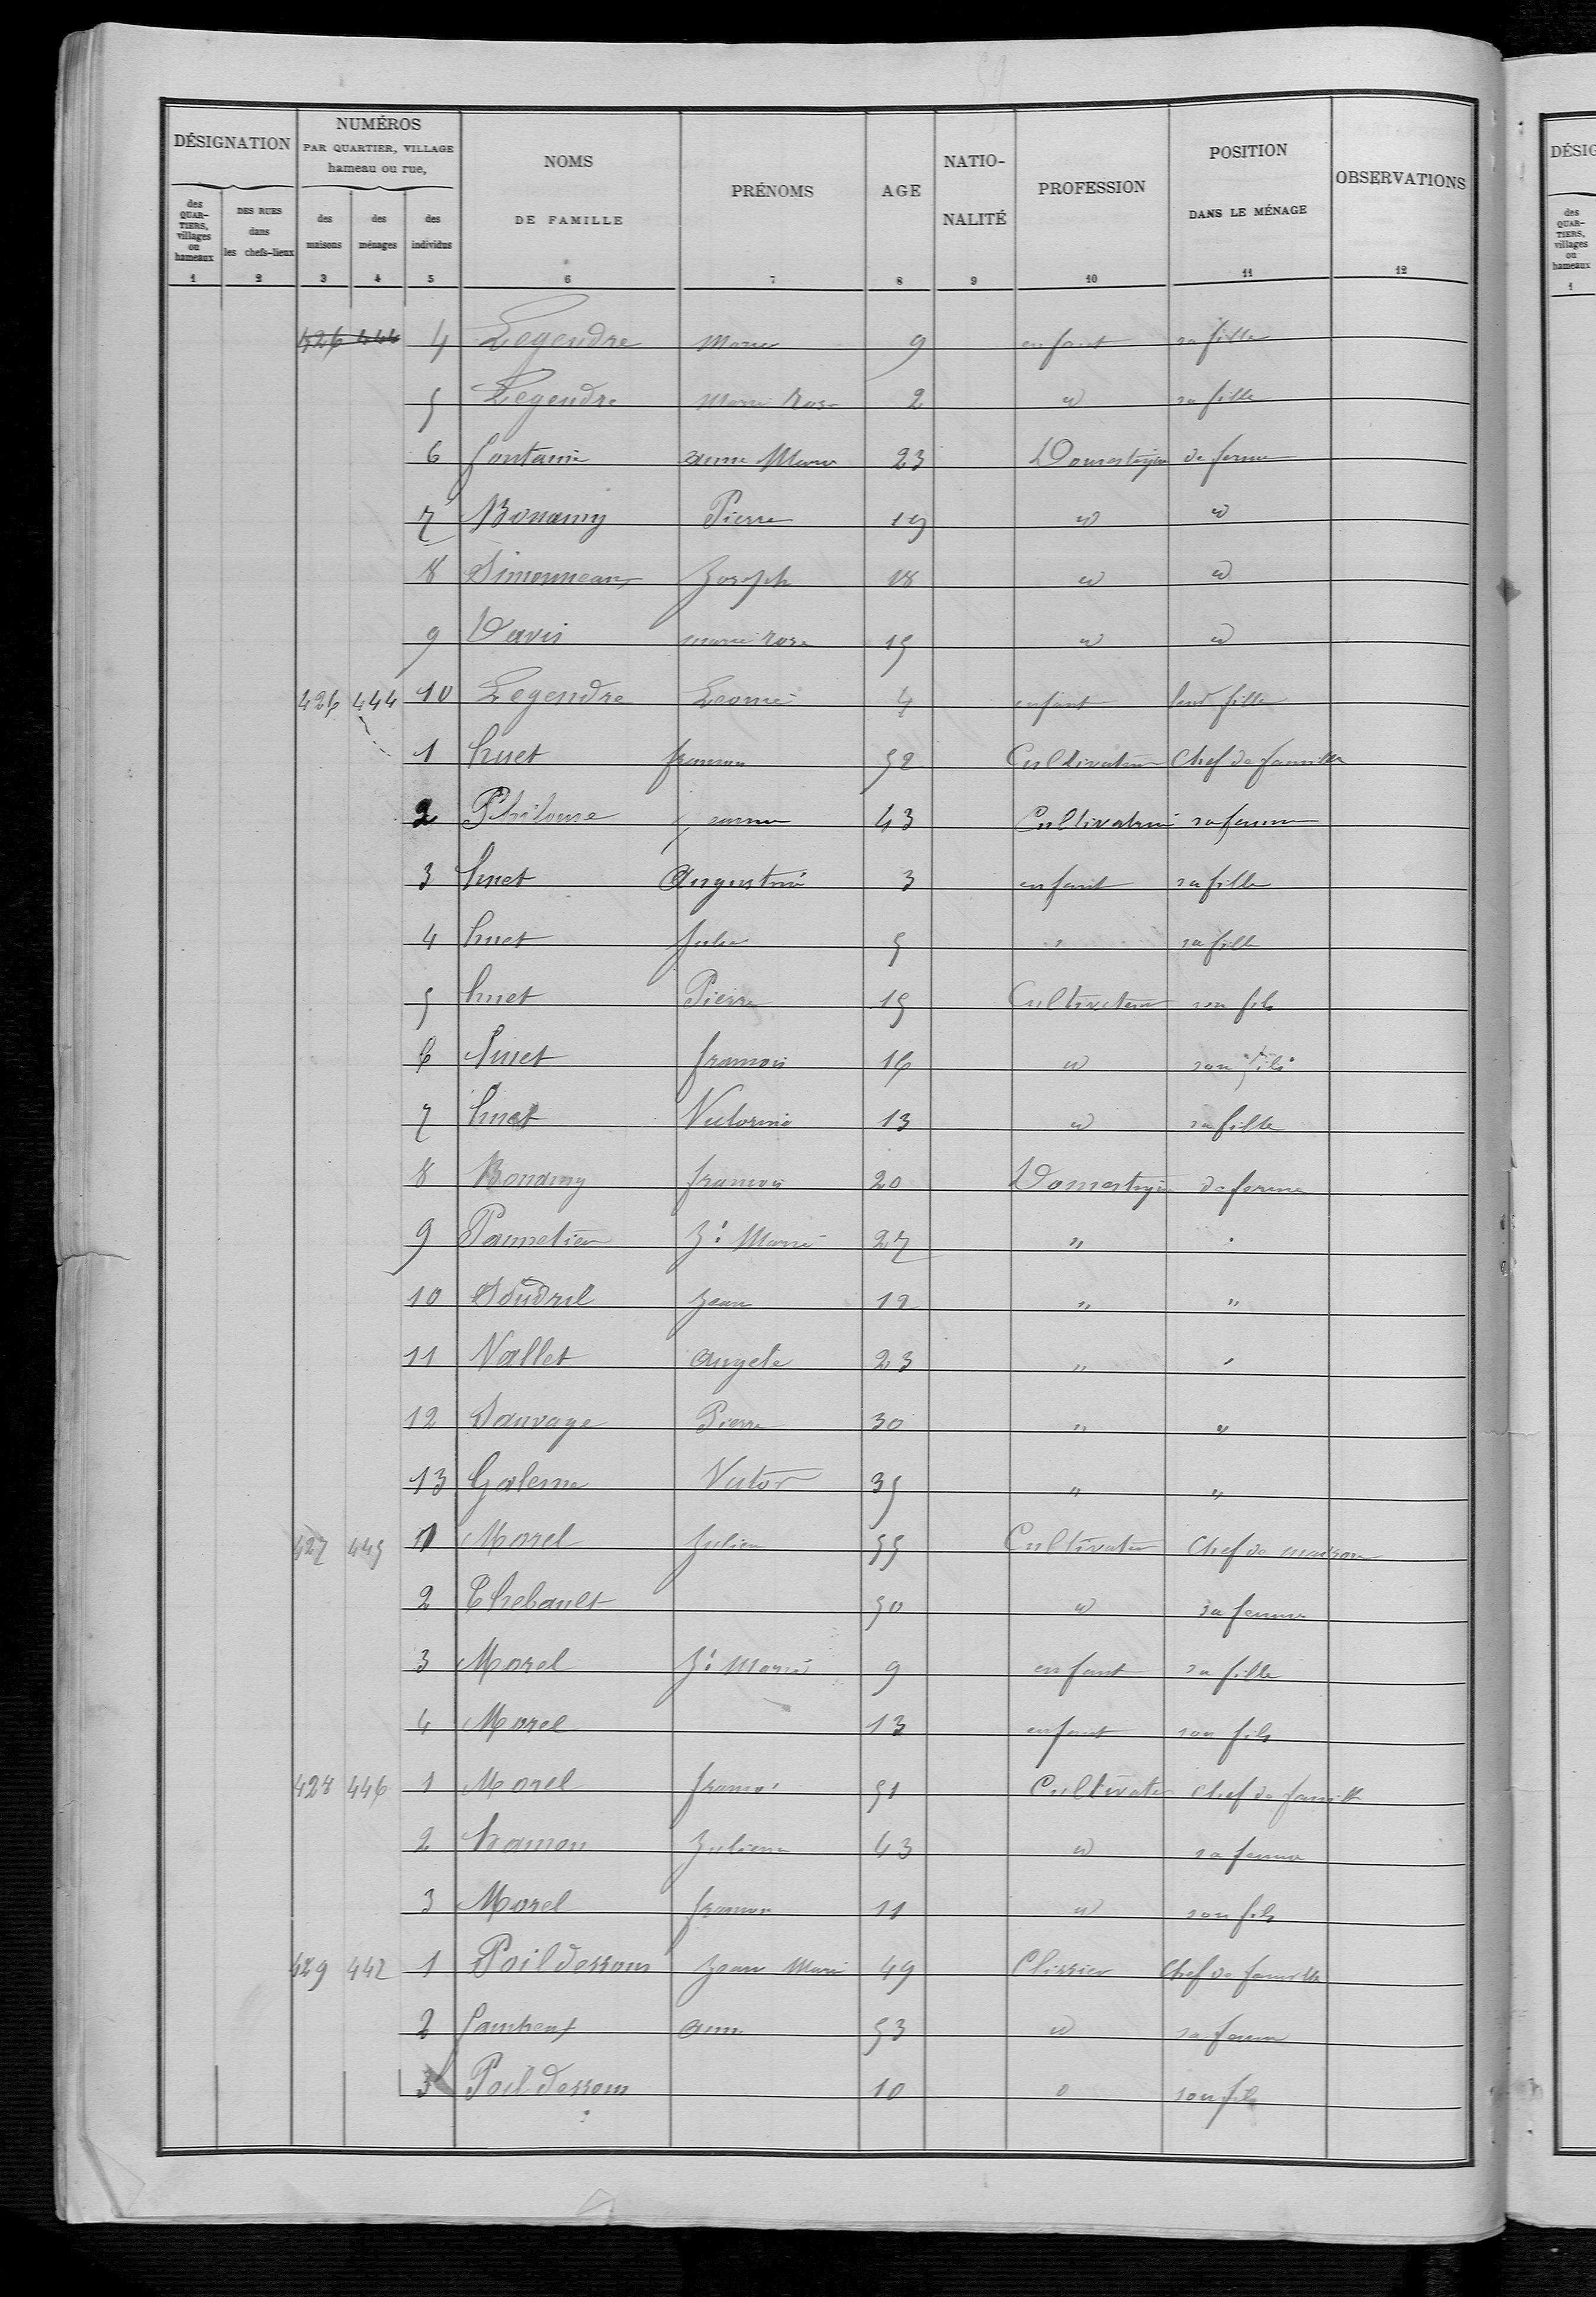 DÉSIGNATION NUMÉROS PAR QUARTIER, VILLAGE hameau ou rue, NOMS DE FAMILLE PRÉNOMS AGE NATIO-NALITÉ PROFESSION POSITION DANS LE MÉNAGE OBSERVATIONS
des QUAR-TIERS, villages ou hameaux DES RUES dans les chefs-lieux des maisons des ménages des individus
1 2 3 4 5 6 7 8 9 10 11 12
426 444 4 Legendre Marie 9 enfant sa fille
5 Legendre Marie Rose 2 id sa fille
6 fontaine anne Marie 23 Domestique de ferme
7 Bonamy Pierre 19 id id
8 Simonneaux Joseph 18 id id
9 Davis marie rose 15 id id
426 444 10 Legendre Leonie 4 enfant leur fille
1 huet francois 52 Cultivateur Chef de famille
2 43 Cultivatrice sa femme
3 huet Augustine 3 enfant sa fille
4 huet Julie 5 " sa fille
5 huet Pierre 15 Cultivateur son fils
6 huet francois 16 id son fils
7 huet Victorine 13 id sa fille
8 Bonamy francois 20 Domestique de ferme
9 J: Marie 27 "
10 Jean 19 " "
11 Vallet Angele 23 " "
12 Sauvage Pierre 30 " "
13 Galesne Victor 35 " "
427 445 1 Morel Julien 55 Cultivateur Chef de maison
2 Thebault 50 id sa femme
3 Morel J: Marie 9 enfant sa fille
4 Morel 13 enfant son fils
428 446 1 Morel francois 51 Cultivateur Chef de famille
2 hamon Julienne 43 id sa femme
3 Morel francois 11 id son fils
429 447 1 Poildessous Jean Marie 49 Clissier Chef de famille
2 anne 53 id sa femme
3 Poildessous 10 son fils
DÉSIG
des QUAR-TIERS, villages ou hameaux
1